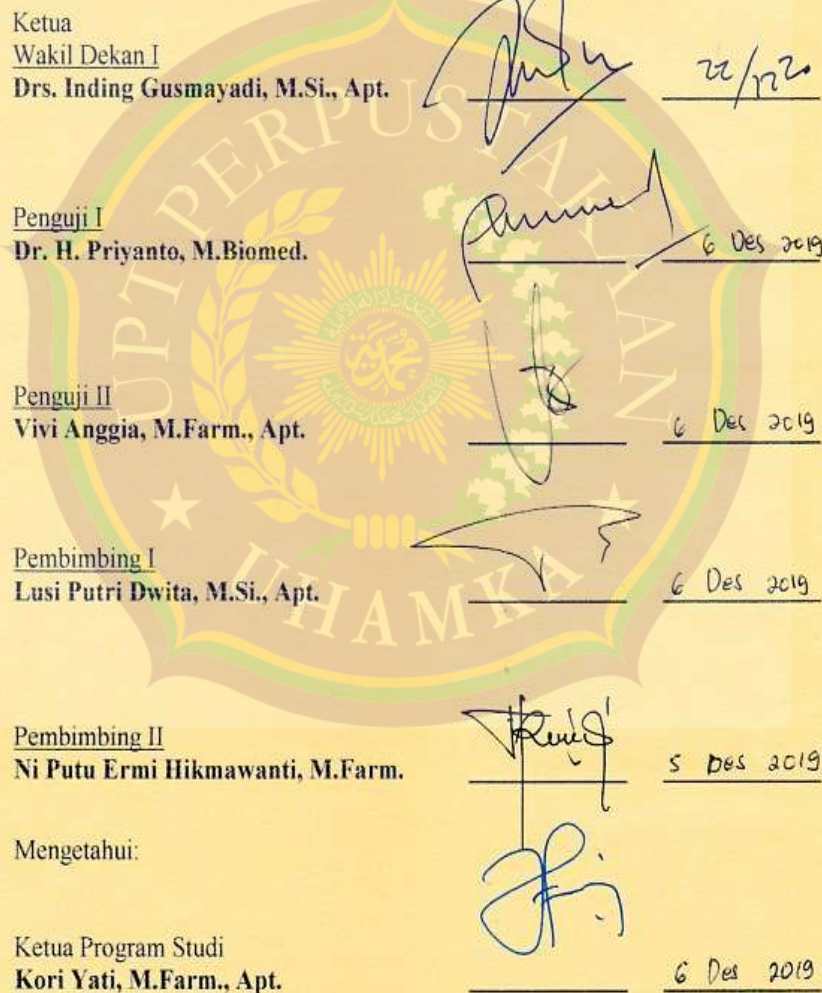 Ketua
Wakil Dekan I
Drs. Inding Gusmayadi, M.Si., Apt.
22/12 20
Penguji I
Dr. H. Priyanto, M.Biomed.
6 Des 2019
Penguji II
Vivi Anggia, M.Farm., Apt.
6 Des 2019
Pembimbing I
Lusi Putri Dwita, M.Si., Apt.
6 Des 2019
Pembimbing II
Ni Putu Ermi Hikmawanti, M.Farm.
5 Des 2019
Mengetahui:
Ketua Program Studi
Kori Yati, M.Farm., Apt.
6 Des 2019
UPT PERPUSTAKAAN
UHAMKA